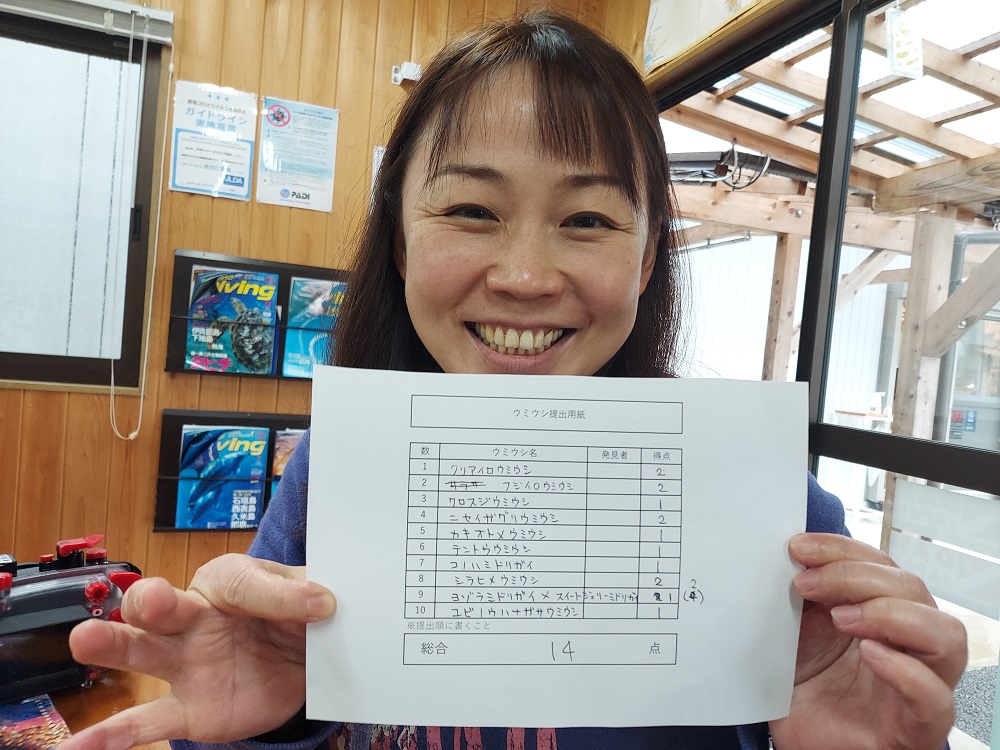 ガイドライン
実施宣言
PADI
Diving
ving
石垣島
西表島
久米島
ウミウシ提出用紙
数 ウミウシ名 発見者 得点
1 クリアイロウミウシ 2
2 フジイロウミウシ 2
3 クロスジウミウシ 1
4 ニセイガグリウミウシ 2
5 カキオトメウミウシ 1
6 テントウウミウシ 1
7 コノハミドリガイ 1
8 シラヒメウミウシ 2
9 ヨゾラミドリガイ × スイートジェリーミドリガイ 1
10 ユビノウハナガサウミウシ 1
※提出順に書くこと
総合 14 点